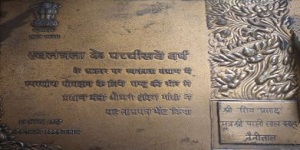 स्वतंत्रता के पच्चीसवें वर्ष
के अवसर पर स्वतंत्रता संग्राम में
स्मरणीय योगदान के लिए राष्ट्र की ओर से
प्रधान मंत्री श्रीमती इंदिरा गांधी ने
यह ताम्रपत्र भेंट किया
श्री शिव प्रसाद
नैनीताल